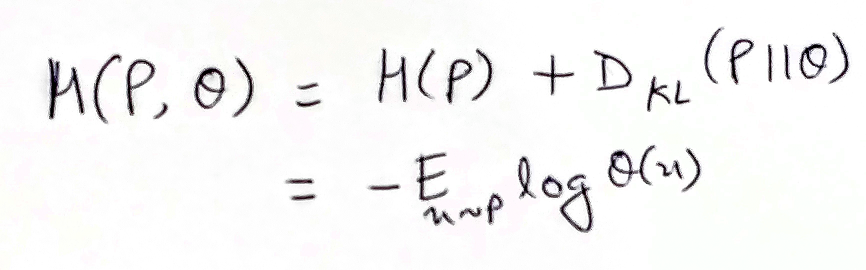 H(P, θ) = H(P) + D_KL (P||θ)
= -E_x~P log θ(x)